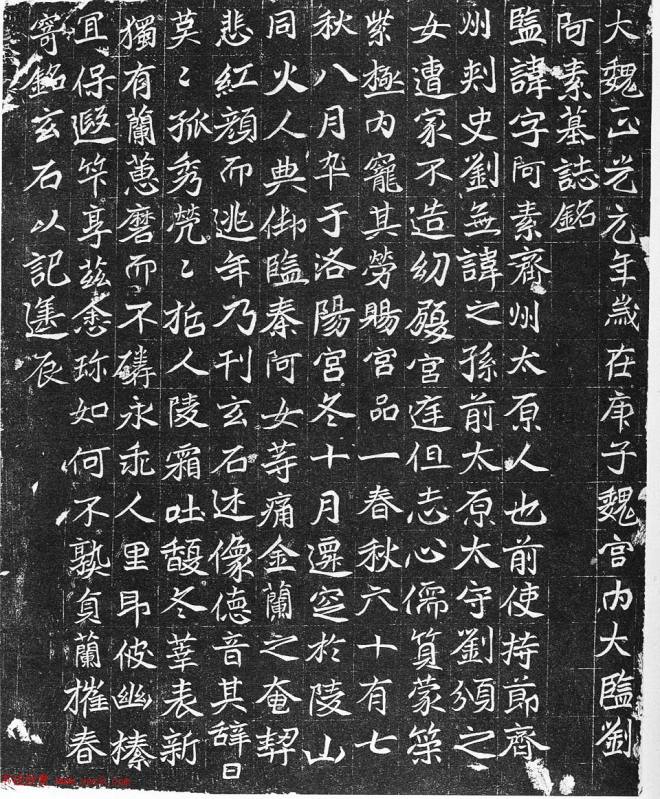 大魏正光元年歲在庚子魏宮內大監劉
阿素墓誌銘
監諱字阿素齊州太原人也前使持節齊
州刺史劉無諱之孫前太原太守劉頒之
女遭家不造幼履宮庭但志心儒質蒙策
紫極內寵其勞賜宮品一春秋六十有七
秋八月卒于洛陽宮冬十月遷窆於陵山
同火人典御監秦阿女等痛金蘭之奄契
悲紅顏而逃年乃刊玄石述像德音其辭曰
莫〻孤秀煢〻哲人陵霜吐馥冬華表新
獨有蘭蕙磨而不磷永乖人里即彼幽榛
宜保遐筭享茲悆珎如何不熟貞蘭摧春
寄銘玄石以記遷辰